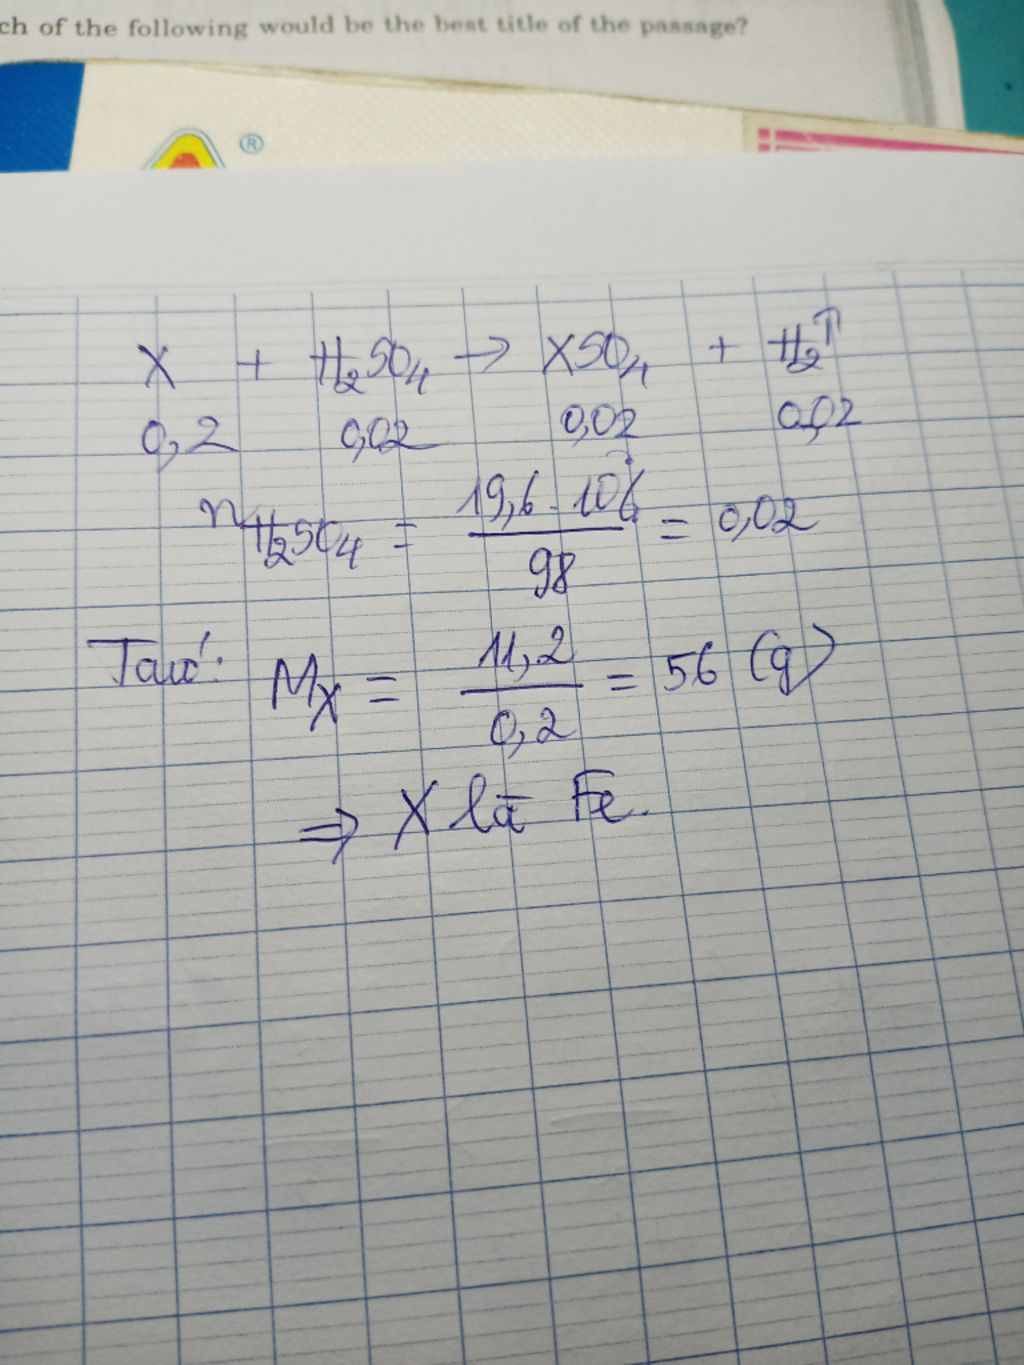 ch of the following would be the best title of the passage?
®
X + H₂SO₄ → XSO₄ + H₂↑
0,2 0,02 0,02 0,02
nH₂SO₄ = 19,6 . 10% / 98 = 0,02
Ta có: Mx = 11,2 / 0,2 = 56 (g)
⇒ X là Fe.